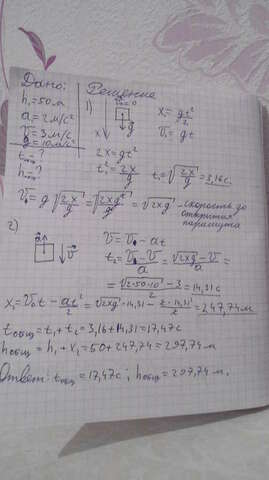 Дано:
h₁=50м
a=2м/с²
V=3м/с
g=10м/с²
t общ-?
h общ-?
Решение
1)
V₀=0
g
x
x=gt²/2
V₀=gt
2x=gt²
t₁²=2x/g
t₁=√(2x/g)=3,16с
V₀=g√(2x/g)=√(2xg²/g)=√(2xg) - скорость до
открытия
парашюта
2)
a
V
V=V₀-at
t₂=(V₀-V)/a=(√(2xg)-V)/a=
=(√(2·50·10)-3)/2=14,31с
x₁=V₀t-at²/2=√(2xg)·14,31-2·14,31²/2=247,74м
tобщ=t₁+t₂=3,16+14,31=17,47с
hобщ=h₁+x₂=50+247,74=297,74м
Ответ: tобщ=17,47с; hобщ=297,74м.